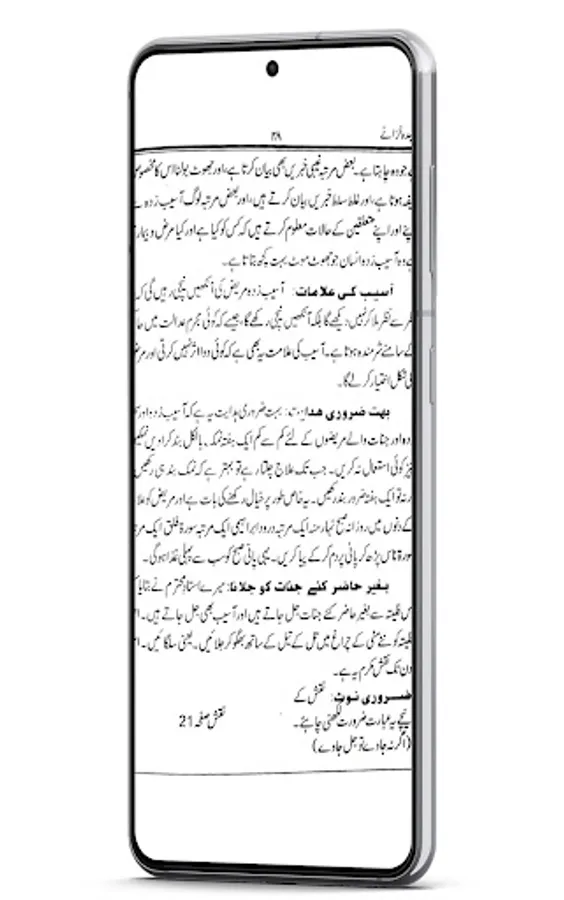 ۲۸
جو وہ چاہتا ہے۔ بعض مرتبہ غیبی خبریں بھی بیان کرتا ہے، اور جھوٹ بولنا اس کا
ہوتا ہے، اور غلط سلط خبریں بیان کرتے ہیں، اور بعض مرتبہ لوگ آسیب زدہ سے
اور اپنے متعلقین کے حالات معلوم کرتے ہیں کہ کس کو کیا ہے اور کیا مرض و
وہ آسیب زدہ انسان جو جھوٹ موٹ بہت کچھ بتاتا ہے۔
آسیب کی علامات: آسیب زدہ مریض کی آنکھیں نیچی رہیں گی
سے نظر ملا کر نہیں دیکھے گا بلکہ آنکھیں نیچی رکھے گا، جیسے کہ کوئی مجرم عدالت میں
کے سامنے شرمندہ ہوتا ہے۔ آسیب کی علامت یہ بھی ہے کہ کوئی دوا اثر نہیں کرتی اور
کی شکل اختیار کرلے گا۔
بہت ضروری ہدایت: بہت ضروری ہدایت یہ ہے کہ آسیب زدہ اور
اور جنات والے مریضوں کے لئے کم سے کم ایک ہفتہ نمک بالکل بند کرا دیں
کوئی استعمال نہ کریں۔ جب تک علاج چلتا رہے تو بہتر ہے کہ نمک بند ہی رکھیں
ورنہ تو ایک ہفتہ ضرور بند رکھیں۔ یہ خاص طور پر خیال رکھنے کی بات ہے اور مریض کو
کے دنوں میں روزانہ صبح نہار منہ ایک مرتبہ درود ابراہیمی ایک مرتبہ سورۃ فلق ایک
سورۃ ناس پڑھ کر پانی پر دم کر کے پیا کریں۔ یہی پانی صبح کو سب سے پہلی غذا ہوگی۔
بغیر حاضر کئے جنات کو جلانا: میرے استاد محترم نے بتایا
اس فلیتہ سے بغیر حاضر کئے جنات جل جاتے ہیں اور آسیب بھی جل جاتے ہیں۔
فلیتہ کو نئے مٹی کے چراغ میں تل کے تیل کے ساتھ بھگو کر جلائیں۔ یعنی سلگائیں۔
دن تک نقش مکرم یہ ہے۔
ضروری نوٹ: نقش کے
نیچے یہ عبارت ضرورت لکھنی چاہئے۔ نقش صفحہ 21
(اگر نہ جاوے تو جل جاوے)